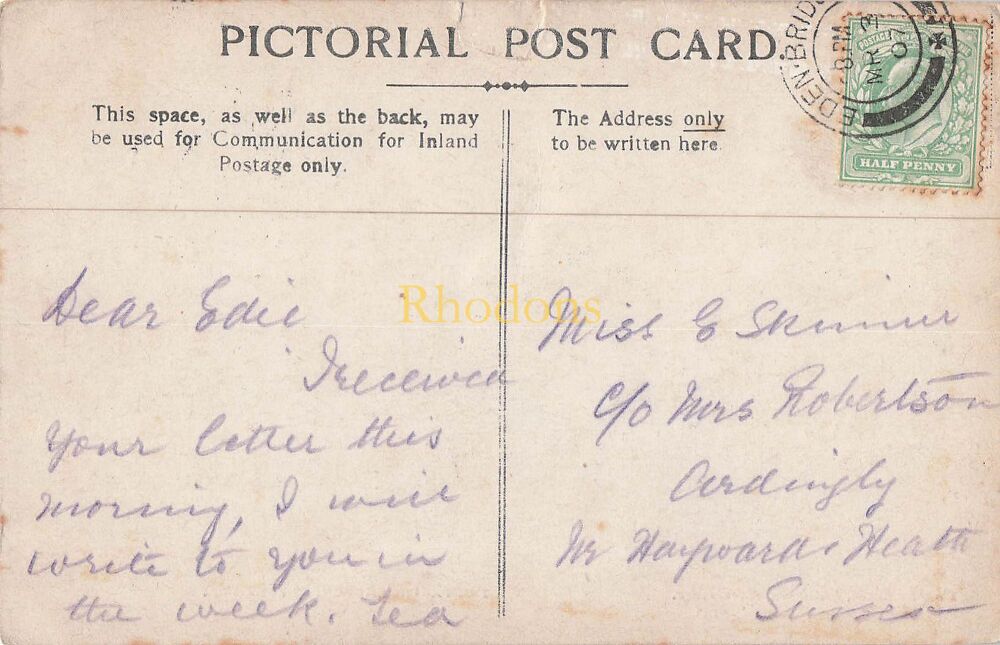 PICTORIAL POST CARD.
This space, as well as the back, may
be used for Communication for Inland
Postage only.
The Address only
to be written here.
EDENBRIDG
8 PM
MR 3
07
POSTAGE
HALF PENNY
Rhodons
Dear Edie
I received
your letter this
morning, I will
write to you in
the week. Lea
Miss E Skinner
c/o Mrs Robertson
Ardingly
Nr Haywards Heath
Sussex